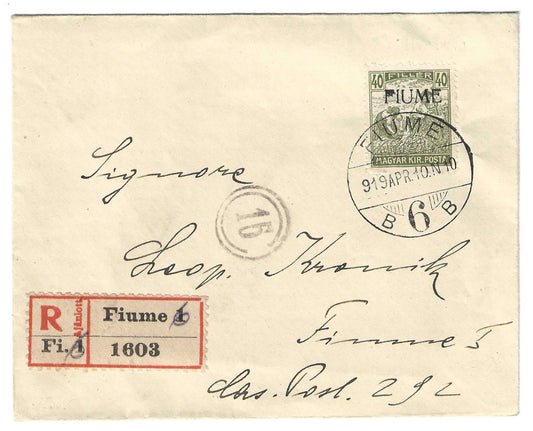 40 FILLER 40
FIUME
MAGYAR KIR. POSTA
FIUME
919 APR.10.N10
B 6 B
Signore
15
Leop. Kronik
Fiume I
Cas. Post. 292
R Ajánlott Fiume 1 6
Fi. 1 6 1603